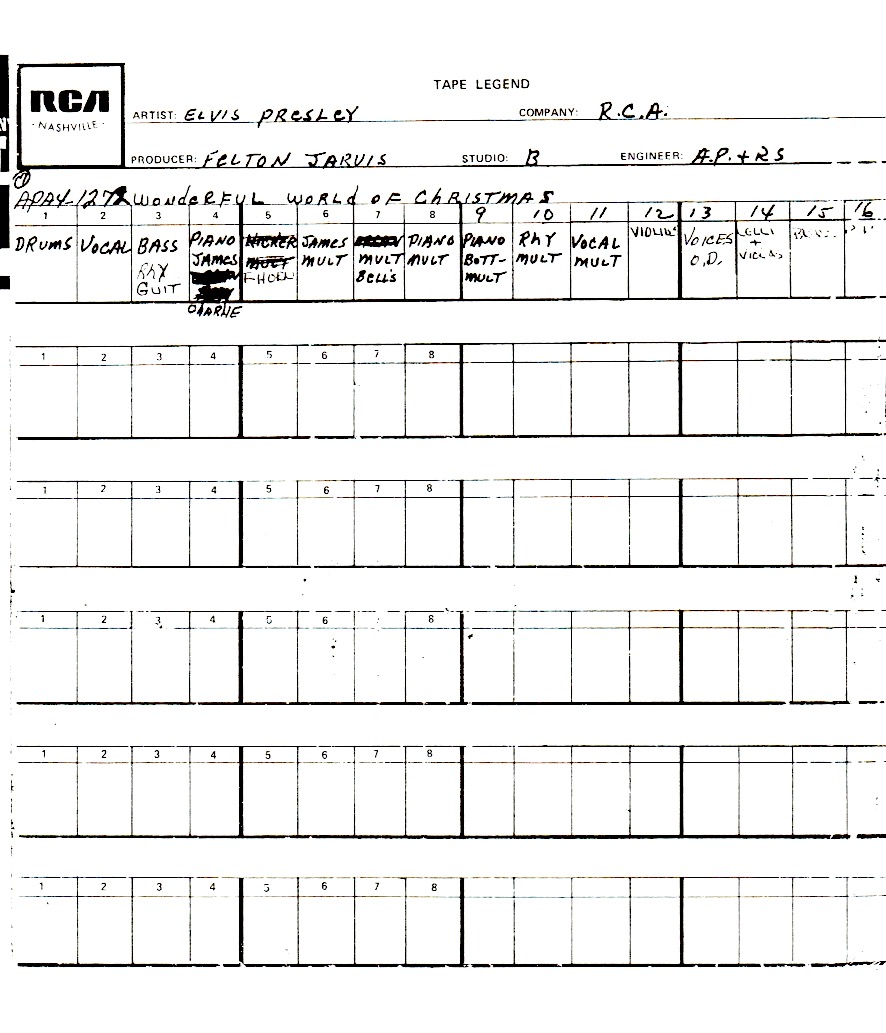 TAPE LEGEND
RCA
NASHVILLE
ARTIST: ELVIS PRESLEY COMPANY: R.C.A.
PRODUCER: FELTON JARVIS STUDIO: B ENGINEER: A.P. + RS
1
WONDERFUL WORLD OF CHRISTMAS
1 2 3 4 5 6 7 8 9 10 11 12 13 14 15 16
DRUMS VOCAL BASS PIANO KICKER JAMES PIANO PIANO RHY VOCAL VIOLINS VOICES CELLI
JAMES MULT MULT MULT MULT BOTT- MULT MULT O.D. +
RHY BELLS MULT VIOLAS
GUIT
CHARLIE
1 2 3 4 5 6 7 8
1 2 3 4 5 6 7 8
1 2 3 4 5 6 8
1 2 3 4 5 6 7 8
1 2 3 4 5 6 7 8